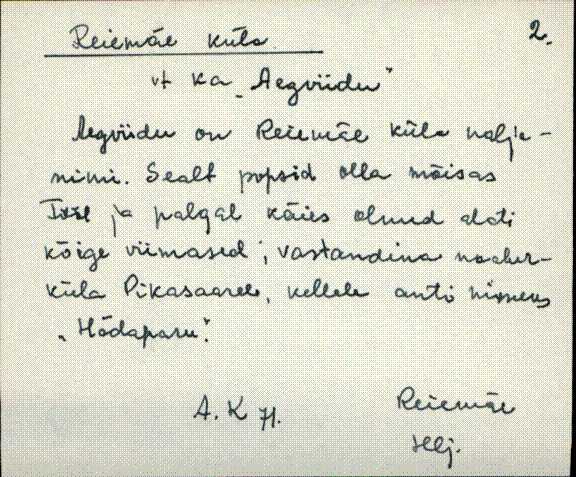 Reiemäe küla 2.
vt ka „Aegviidu"
Aegviidu on Reiemäe küla nalja-
nimi. Sealt popsid olla mõisas
tööl ja palgal käies olnud alati
kõige viimased; vastandina naaber-
küla Pikasaarele, kellele anti nimeks
„Hädaparu".
A. K 71. Reiemäe
Hlj.